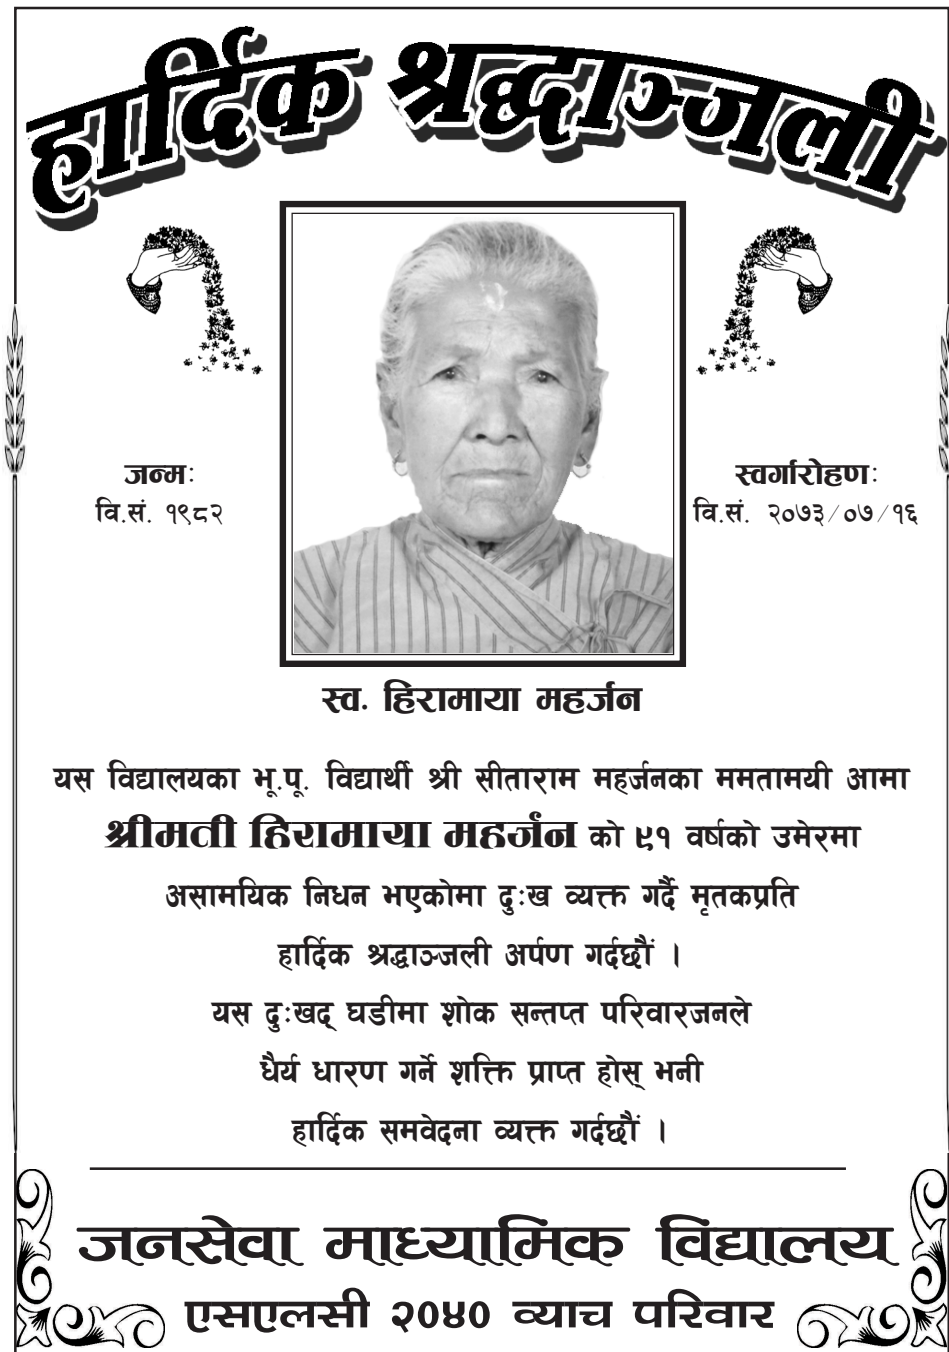 हार्दिक श्रद्धाञ्जली
जन्म:
वि.सं. १९८२
स्वर्गारोहण:
वि.सं. २०७३/०७/१६
स्व. हिरामाया महर्जन
यस विद्यालयका भू.पू. विद्यार्थी श्री सीताराम महर्जनका ममतामयी आमा
श्रीमती हिरामाया महर्जन को ९१ वर्षको उमेरमा
असामयिक निधन भएकोमा दुःख व्यक्त गर्दै मृतकप्रति
हार्दिक श्रद्धाञ्जली अर्पण गर्दछौं ।
यस दुःखद् घडीमा शोक सन्तप्त परिवारजनले
धैर्य धारण गर्ने शक्ति प्राप्त होस् भनी
हार्दिक समवेदना व्यक्त गर्दछौं ।
जनसेवा माध्यामिक विद्यालय
एसएलसी २०४० व्याच परिवार